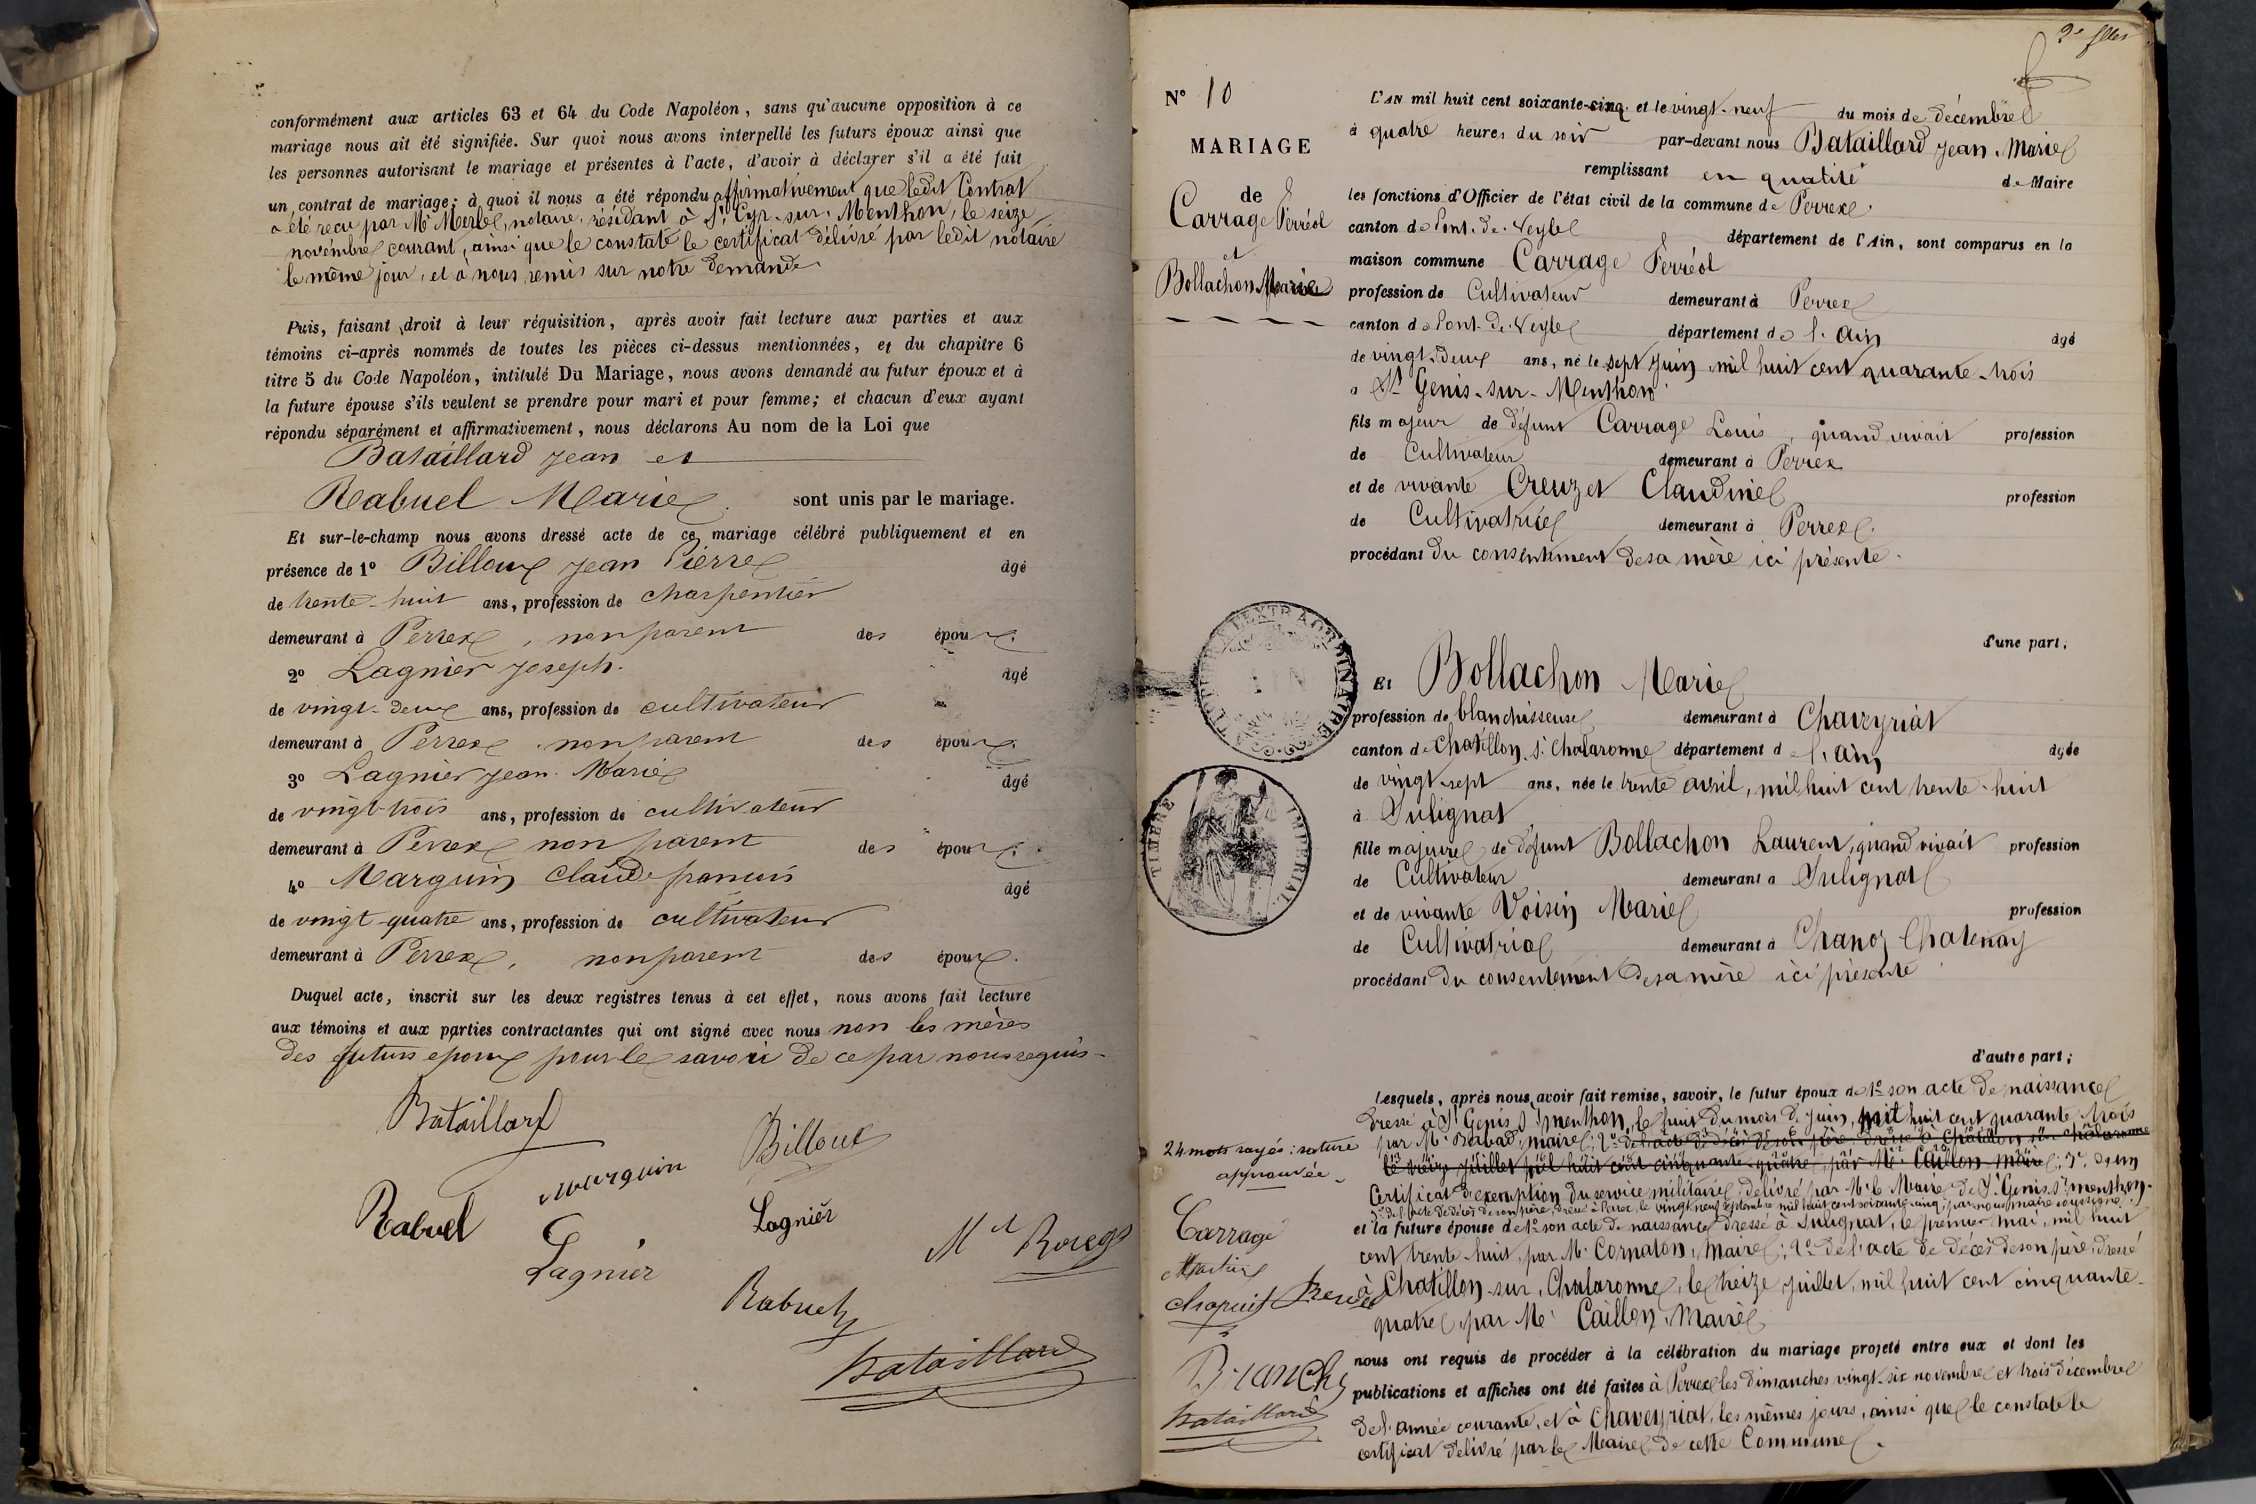 conformément aux articles 63 et 64 du Code Napoléon, sans qu'aucune opposition à ce
mariage nous ait été signifiée. Sur quoi nous avons interpellé les futurs époux ainsi que
les personnes autorisant le mariage et présentes à l'acte, d'avoir à déclarer s'il a été fait
un contrat de mariage; à quoi il nous a été répondu affirmativement que ledit Contrat
a été reçu par Me Merle, notaire, résidant à St Cyr-sur-Menthon, le seize
novembre courant, ainsi que le constate le certificat délivré par ledit notaire
le même jour, et à nous remis sur notre demande.
Puis, faisant droit à leur réquisition, après avoir fait lecture aux parties et aux
témoins ci-après nommés de toutes les pièces ci-dessus mentionnées, et du chapitre 6
titre 5 du Code Napoléon, intitulé Du Mariage, nous avons demandé au futur époux et à
la future épouse s'ils veulent se prendre pour mari et pour femme; et chacun d'eux ayant
répondu séparément et affirmativement, nous déclarons Au nom de la Loi que
Bataillard Jean et
Rabuel Marie sont unis par le mariage.
Et sur-le-champ nous avons dressé acte de ce mariage célébré publiquement et en
présence de 1º Billoux Jean Pierre âgé
de trente-huit ans, profession de charpentier
demeurant à Perrex, non parent des époux.
2º Lagnier Joseph. âgé
de vingt-deux ans, profession de cultivateur
demeurant à Perrex non parent des époux.
3º Lagnier Jean Marie âgé
de vingt-trois ans, profession de cultivateur
demeurant à Perrex non parent des époux.
4º Marguin Claude françois âgé
de vingt-quatre ans, profession de cultivateur
demeurant à Perrex, non parent des époux.
Duquel acte, inscrit sur les deux registres tenus à cet effet, nous avons fait lecture
aux témoins et aux parties contractantes qui ont signé avec nous non les mères
des futurs époux pour le savoir de ce par nous requis-
Bataillard
Billoux
Marguin
Rabuel
Lagnier
Lagnier
Rabuel
Bataillard
2e flles
Nº 10
MARIAGE
de
Carrage Ferréol
et
Bollachon Marie
L'AN mil huit cent soixante-cinq et le vingt-neuf du mois de décembre
à quatre heures du soir par-devant nous Bataillard Jean-Marie
remplissant en qualité de Maire
les fonctions d'Officier de l'état civil de la commune de Perrex.
canton de Pont-de-Veyle département de l'Ain, sont comparus en la
maison commune Carrage Ferréol
profession de Cultivateur demeurant à Perrex
canton de Pont-de-Veyle département de l'ain âgé
de vingt-deux ans, né le sept juin mil huit cent quarante-trois
à St Genis-sur-Menthon
fils majeur de défunt Carrage Louis, quand vivait profession
de Cultivateur demeurant à Perrex
et de vivante Creuzet Claudine profession
de Cultivatrice demeurant à Perrex.
procédant du consentement de sa mère ici présente.
d'une part;
Et Bollachon Marie
profession de blanchisseuse demeurant à Chaveyriat
canton de Chatillon s. Chalaronne département de l'ain âgée
de vingt-sept ans, née le trente avril, mil huit cent trente-huit
à Sulignat
fille majeure de défunt Bollachon Laurent, quand vivait profession
de Cultivateur demeurant à Sulignat
et de vivante Voisin Marie profession
de Cultivatrice demeurant à Chanoz Chatenay
procédant du consentement de sa mère ici présente
TIMBRE IMPERIAL
d'autre part;
Lesquels, après nous avoir fait remise, savoir, le futur époux de 1º son acte de naissance
dressé à St Genis s. menthon, le huit du mois de juin, mil huit cent quarante-trois
par Mr Rabad, maire; 2º de l'acte de décès de son père dressé à Chatillon sur Chalaronne
le treize juillet mil huit cent cinquante quatre par Mr Caillon Maire; 2º d'un
Certificat d'exemption du service militaire, délivré par Mr le Maire de St Genis s. menthon.
3º de l'acte de décès de son père, dressé à Perrex, le vingt neuf septembre mil huit cent soixante-cinq, par nous maire soussigné
et la future épouse de 1º son acte de naissance dressé à Sulignat, le premier mai, mil huit
cent trente-huit, par Mr Cornaton, maire; 2º de l'acte de décès de son père, dressé
à Chatillon-sur-Chalaronne, le treize juillet, mil huit cent cinquante-
quatre, par Mr Caillon, Maire
24 mots rayés: rature
approuvée
Carrage
Branche
Bataillard
nous ont requis de procéder à la célébration du mariage projeté entre eux et dont les
publications et affiches ont été faites à Perrex les dimanches vingt-six novembre et trois décembre
de l'année courante, et à Chaveyriat, les mêmes jours, ainsi que le constate le
certificat délivré par le Maire de cette Commune.